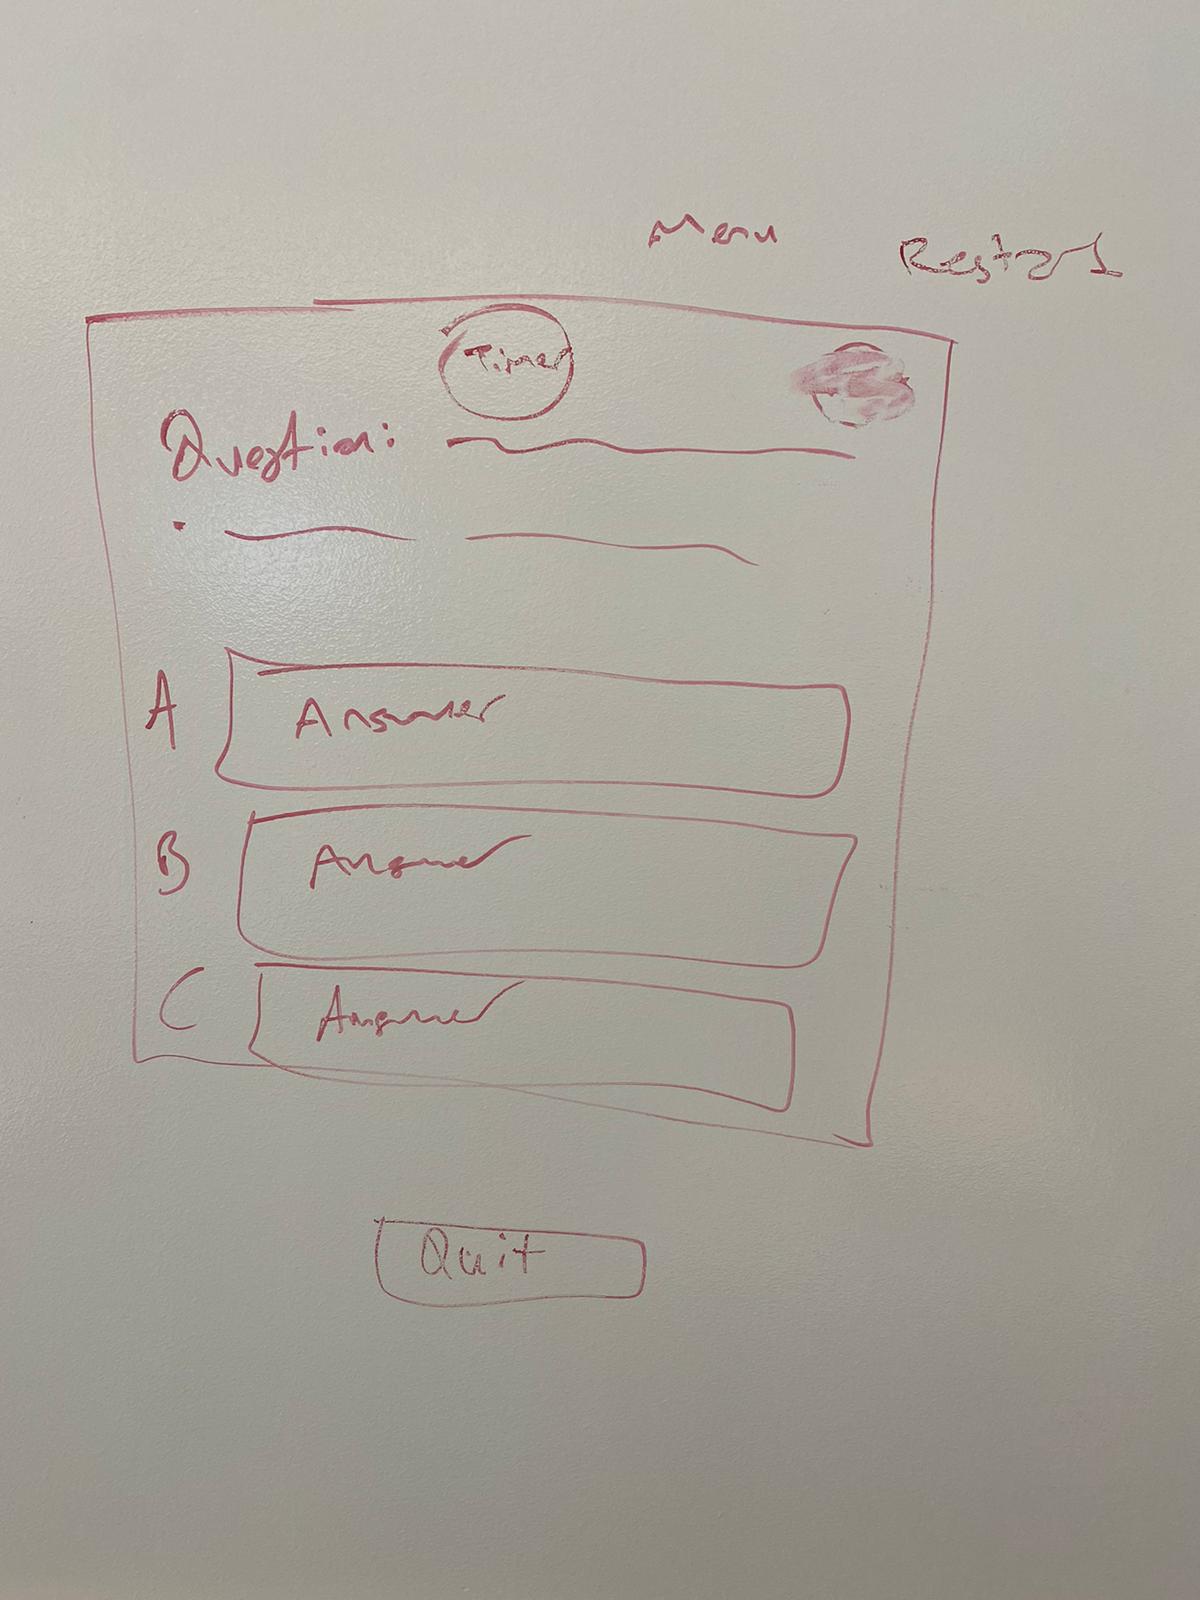 Menu
Restart
Timer
Question:
A Answer
B Answer
C Answer
Quit